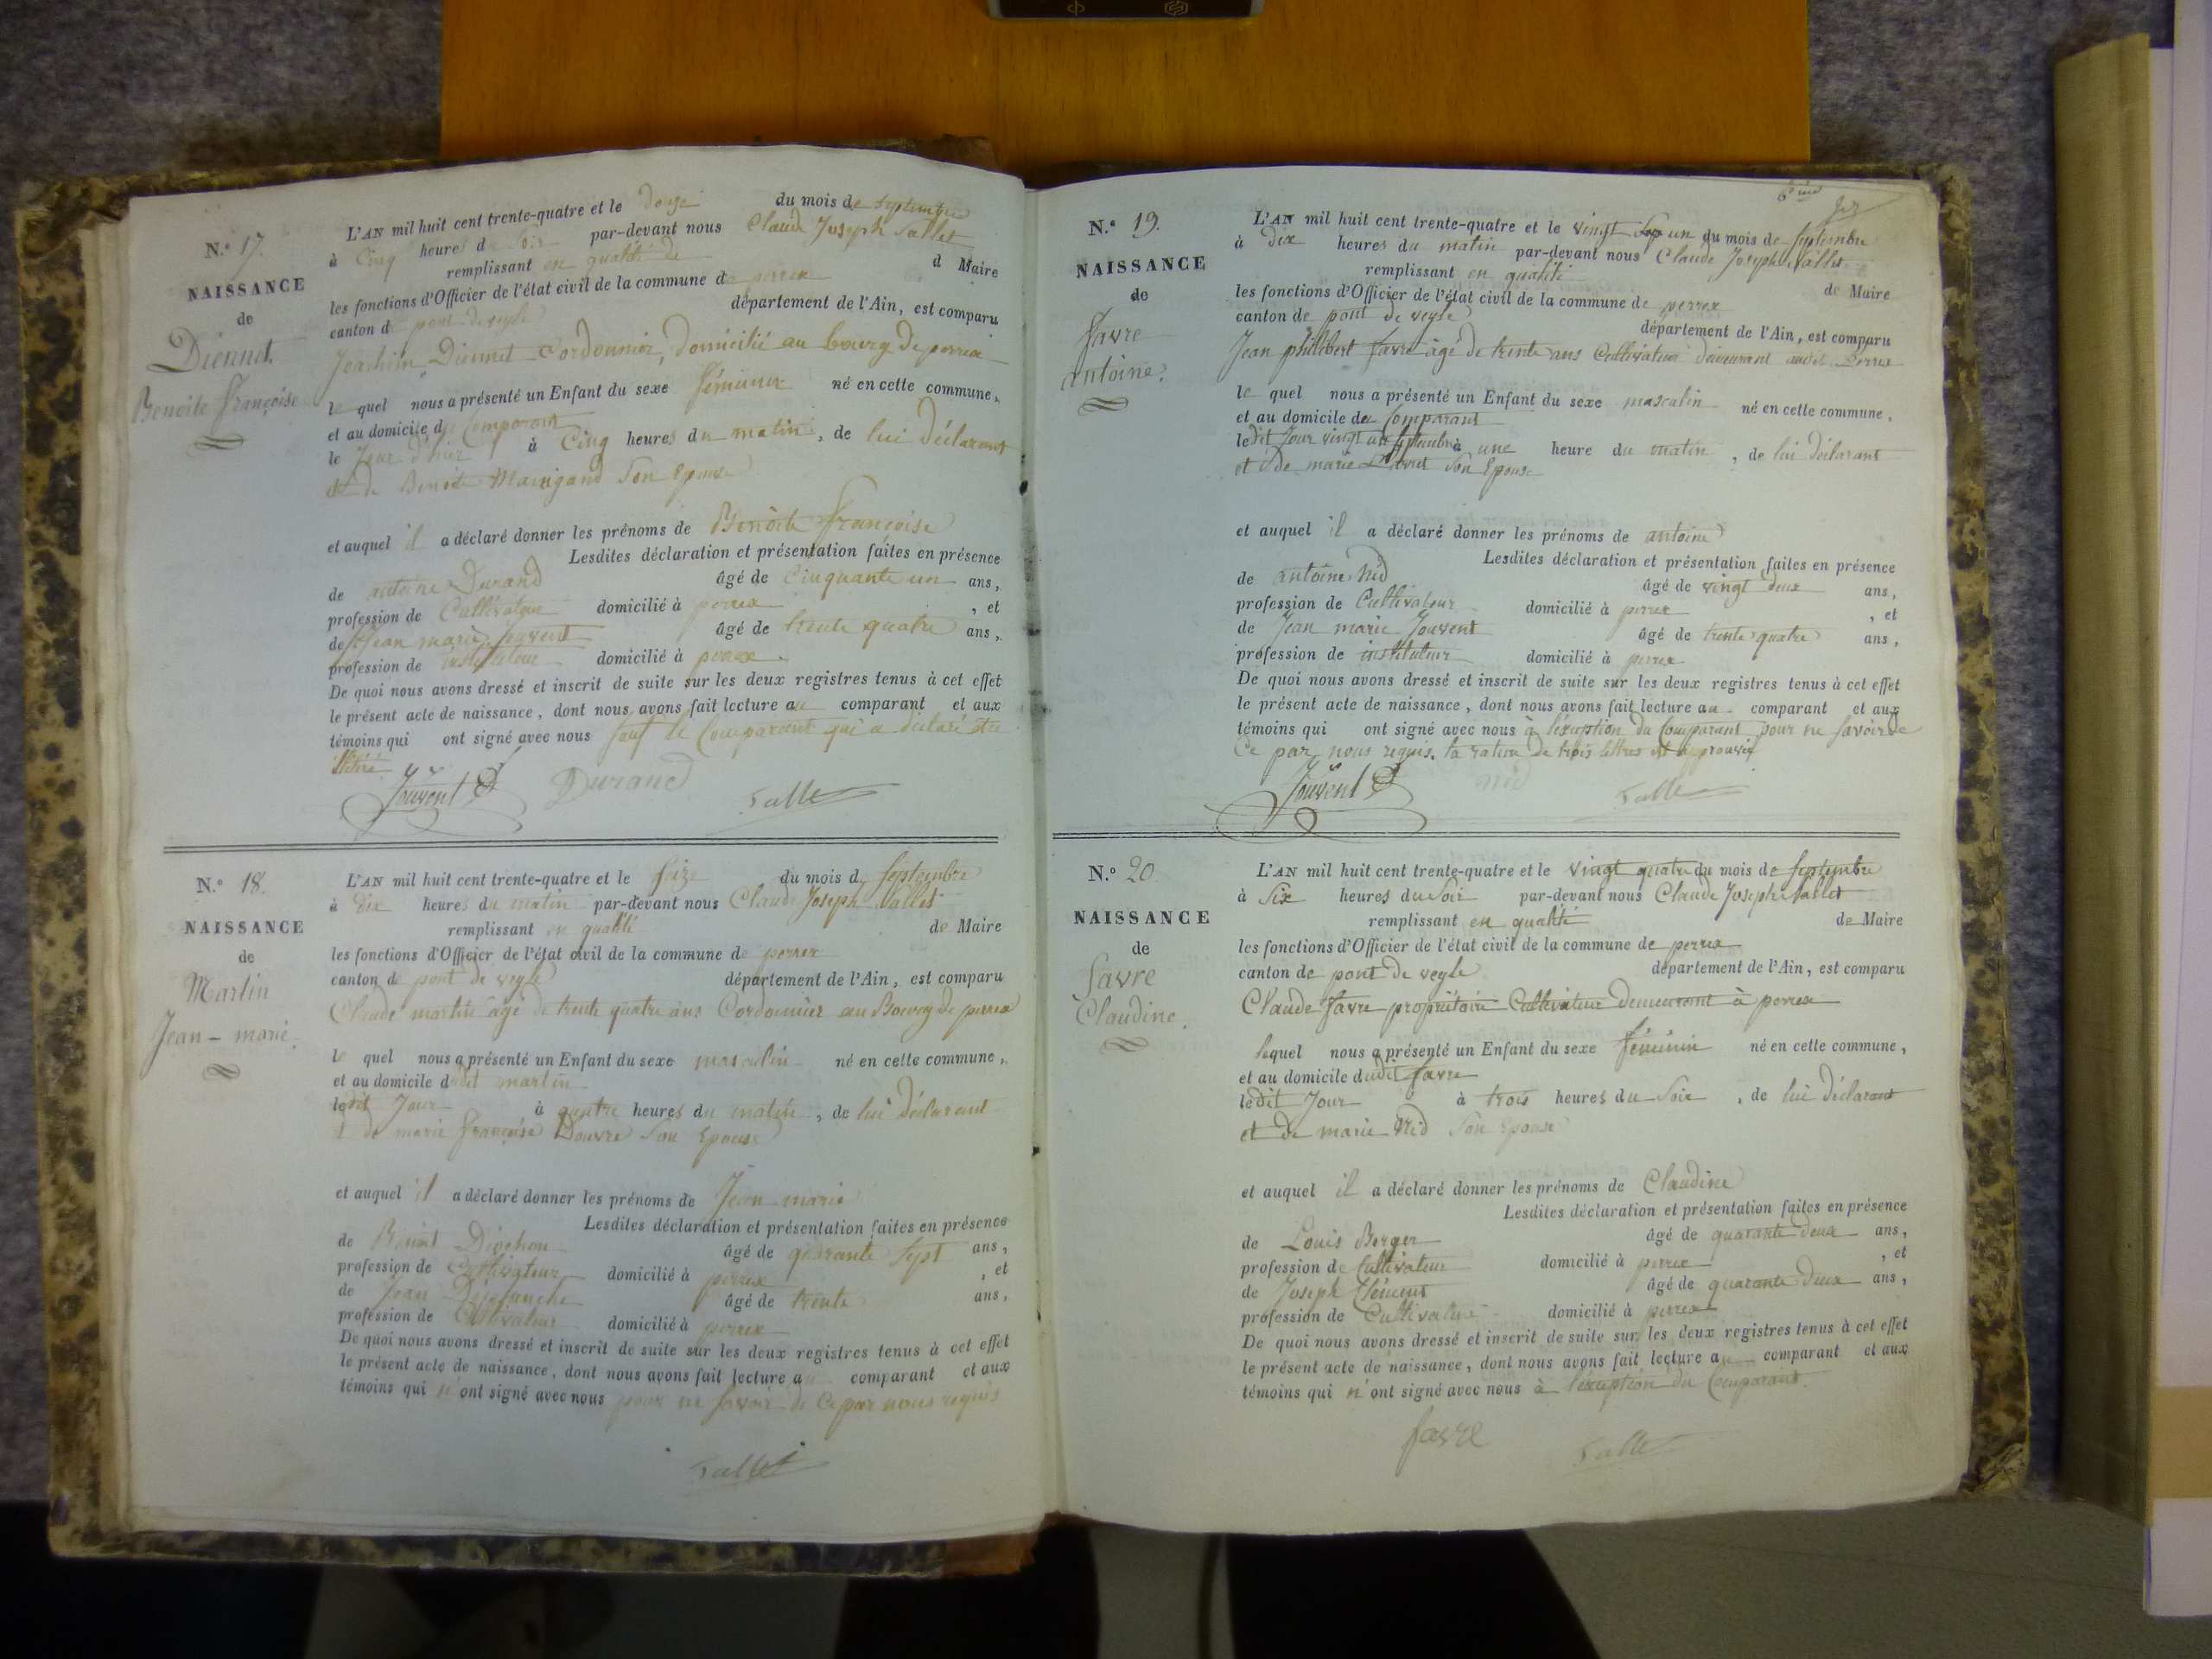 N.º 17.
NAISSANCE
de
Diennet
Benoite Françoise
L'AN mil huit cent trente-quatre et le douze du mois de Septembre
à Cinq heures du Soir par-devant nous Claude Joseph Sallet
remplissant en qualité de d Maire
les fonctions d'Officier de l'état civil de la commune de perrex
canton de pont de veyle département de l'Ain, est comparu
Joachim Diennet Cordonnier, domicilié au bourg de perrex
le quel nous a présenté un Enfant du sexe féminin né en cette commune,
et au domicile du Comparant
le Jour d'hier à Cinq heures du matin, de lui déclarant
et de Benoite Maingand Son Epouse
et auquel il a déclaré donner les prénoms de Benoite françoise
Lesdites déclaration et présentation faites en présence
de antoine Durand âgé de Cinquante un ans,
profession de Cultivateur domicilié à perrex , et
de Jean marie Jouvent âgé de trente quatre ans,
profession de instituteur domicilié à perrex
De quoi nous avons dressé et inscrit de suite sur les deux registres tenus à cet effet
le présent acte de naissance, dont nous avons fait lecture au comparant et aux
témoins qui ont signé avec nous sauf le Comparant qui a déclaré être
illitéré
Jouvent Durand Sallet
N.º 18.
NAISSANCE
de
Martin
Jean-marie.
L'AN mil huit cent trente-quatre et le Seize du mois de Septembre
à dix heures du matin par-devant nous Claude Joseph Sallet
remplissant en qualité de Maire
les fonctions d'Officier de l'état civil de la commune de perrex
canton de pont de veyle département de l'Ain, est comparu
Claude martin âgé de trente quatre ans Cordonnier au Bourg de perrex
le quel nous a présenté un Enfant du sexe masculin né en cette commune,
et au domicile dudit martin
ledit Jour à quatre heures du matin, de lui déclarant
et de marie françoise Douvre Son Epouse
et auquel il a déclaré donner les prénoms de Jean marie
Lesdites déclaration et présentation faites en présence
de Benoit Divehon âgé de quarante Sept ans,
profession de Cultivateur domicilié à perrex , et
de Jean Desplanche âgé de trente ans,
profession de Cultivateur domicilié à perrex
De quoi nous avons dressé et inscrit de suite sur les deux registres tenus à cet effet
le présent acte de naissance, dont nous avons fait lecture au comparant et aux
témoins qui n'ont signé avec nous pour ne savoir de Ce par nous requis
Sallet
6ème
N.º 19.
NAISSANCE
de
favre
antoine.
L'AN mil huit cent trente-quatre et le vingt Sep un du mois de Septembre
à Dix heures du matin par-devant nous Claude Joseph Sallet
remplissant en qualité de Maire
les fonctions d'Officier de l'état civil de la commune de perrex
canton de pont de veyle département de l'Ain, est comparu
Jean philibert favre âgé de trente ans Cultivateur demeurant audit Perrex
le quel nous a présenté un Enfant du sexe masculin né en cette commune,
et au domicile de Comparant
ledit Jour vingt un Septembre à une heure du matin, de lui déclarant
et de marie Son Epouse
et auquel il a déclaré donner les prénoms de antoine
Lesdites déclaration et présentation faites en présence
de antoine Nid âgé de vingt deux ans,
profession de Cultivateur domicilié à perrex , et
de Jean marie Jouvent âgé de trente quatre ans,
profession de instituteur domicilié à perrex
De quoi nous avons dressé et inscrit de suite sur les deux registres tenus à cet effet
le présent acte de naissance, dont nous avons fait lecture au comparant et aux
témoins qui ont signé avec nous à l'éxception du Comparant pour ne Savoir de
Ce par nous requis. la ration de trois lettres est approuvée
Jouvent Nid Sallet
N.º 20
NAISSANCE
de
favre
Claudine.
L'AN mil huit cent trente-quatre et le vingt quatre du mois de Septembre
à Six heures du Soir par-devant nous Claude Joseph Sallet
remplissant en qualité de Maire
les fonctions d'Officier de l'état civil de la commune de perrex
canton de pont de veyle département de l'Ain, est comparu
Claude favre propriétaire Cultivateur demeurant à perrex
lequel nous a présenté un Enfant du sexe féminin né en cette commune,
et au domicile dudit favre
ledit Jour à trois heures du Soir, de lui déclarant
et de marie Nid Son Epouse
et auquel il a déclaré donner les prénoms de Claudine
Lesdites déclaration et présentation faites en présence
de Louis Berger âgé de quarante deux ans,
profession de Cultivateur domicilié à perrex , et
de Joseph Clément âgé de quarante deux ans,
profession de Cultivateur domicilié à perrex
De quoi nous avons dressé et inscrit de suite sur les deux registres tenus à cet effet
le présent acte de naissance, dont nous avons fait lecture au comparant et aux
témoins qui n'ont signé avec nous à l'éxception du Comparant.
favre Sallet